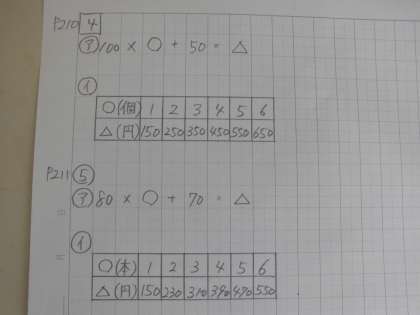 P210 4
㋐ 100 × ○ + 50 = △
㋑
○(個) 1 2 3 4 5 6
△(円) 150 250 350 450 550 650
P211 ⑤
㋐ 80 × ○ + 70 = △
㋑
○(本) 1 2 3 4 5 6
△(円) 150 230 310 390 470 550